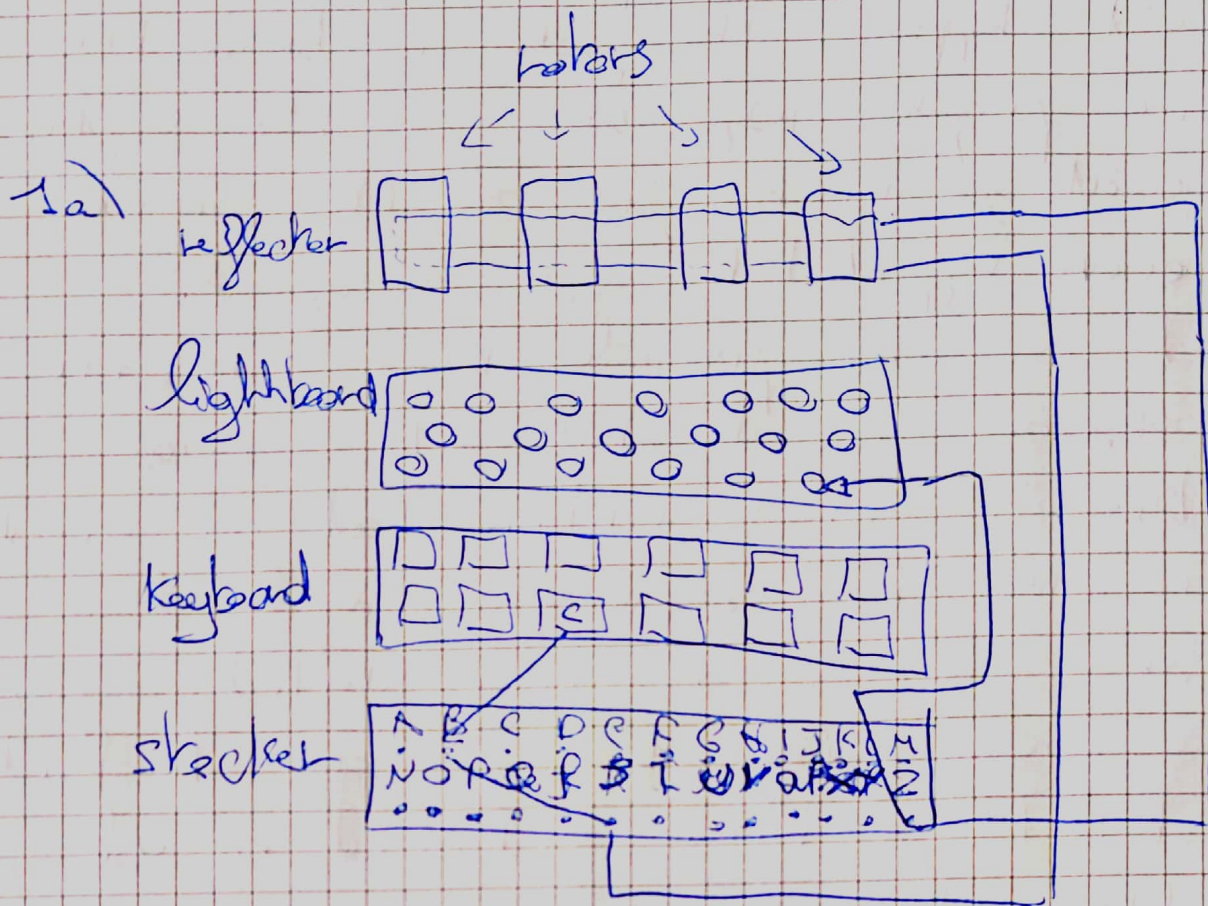 rotors
1a)
reflecter
lightboard
keyboard
C
stecker
A B C D E F G H I J K L M
N O P Q R S T U V
Z